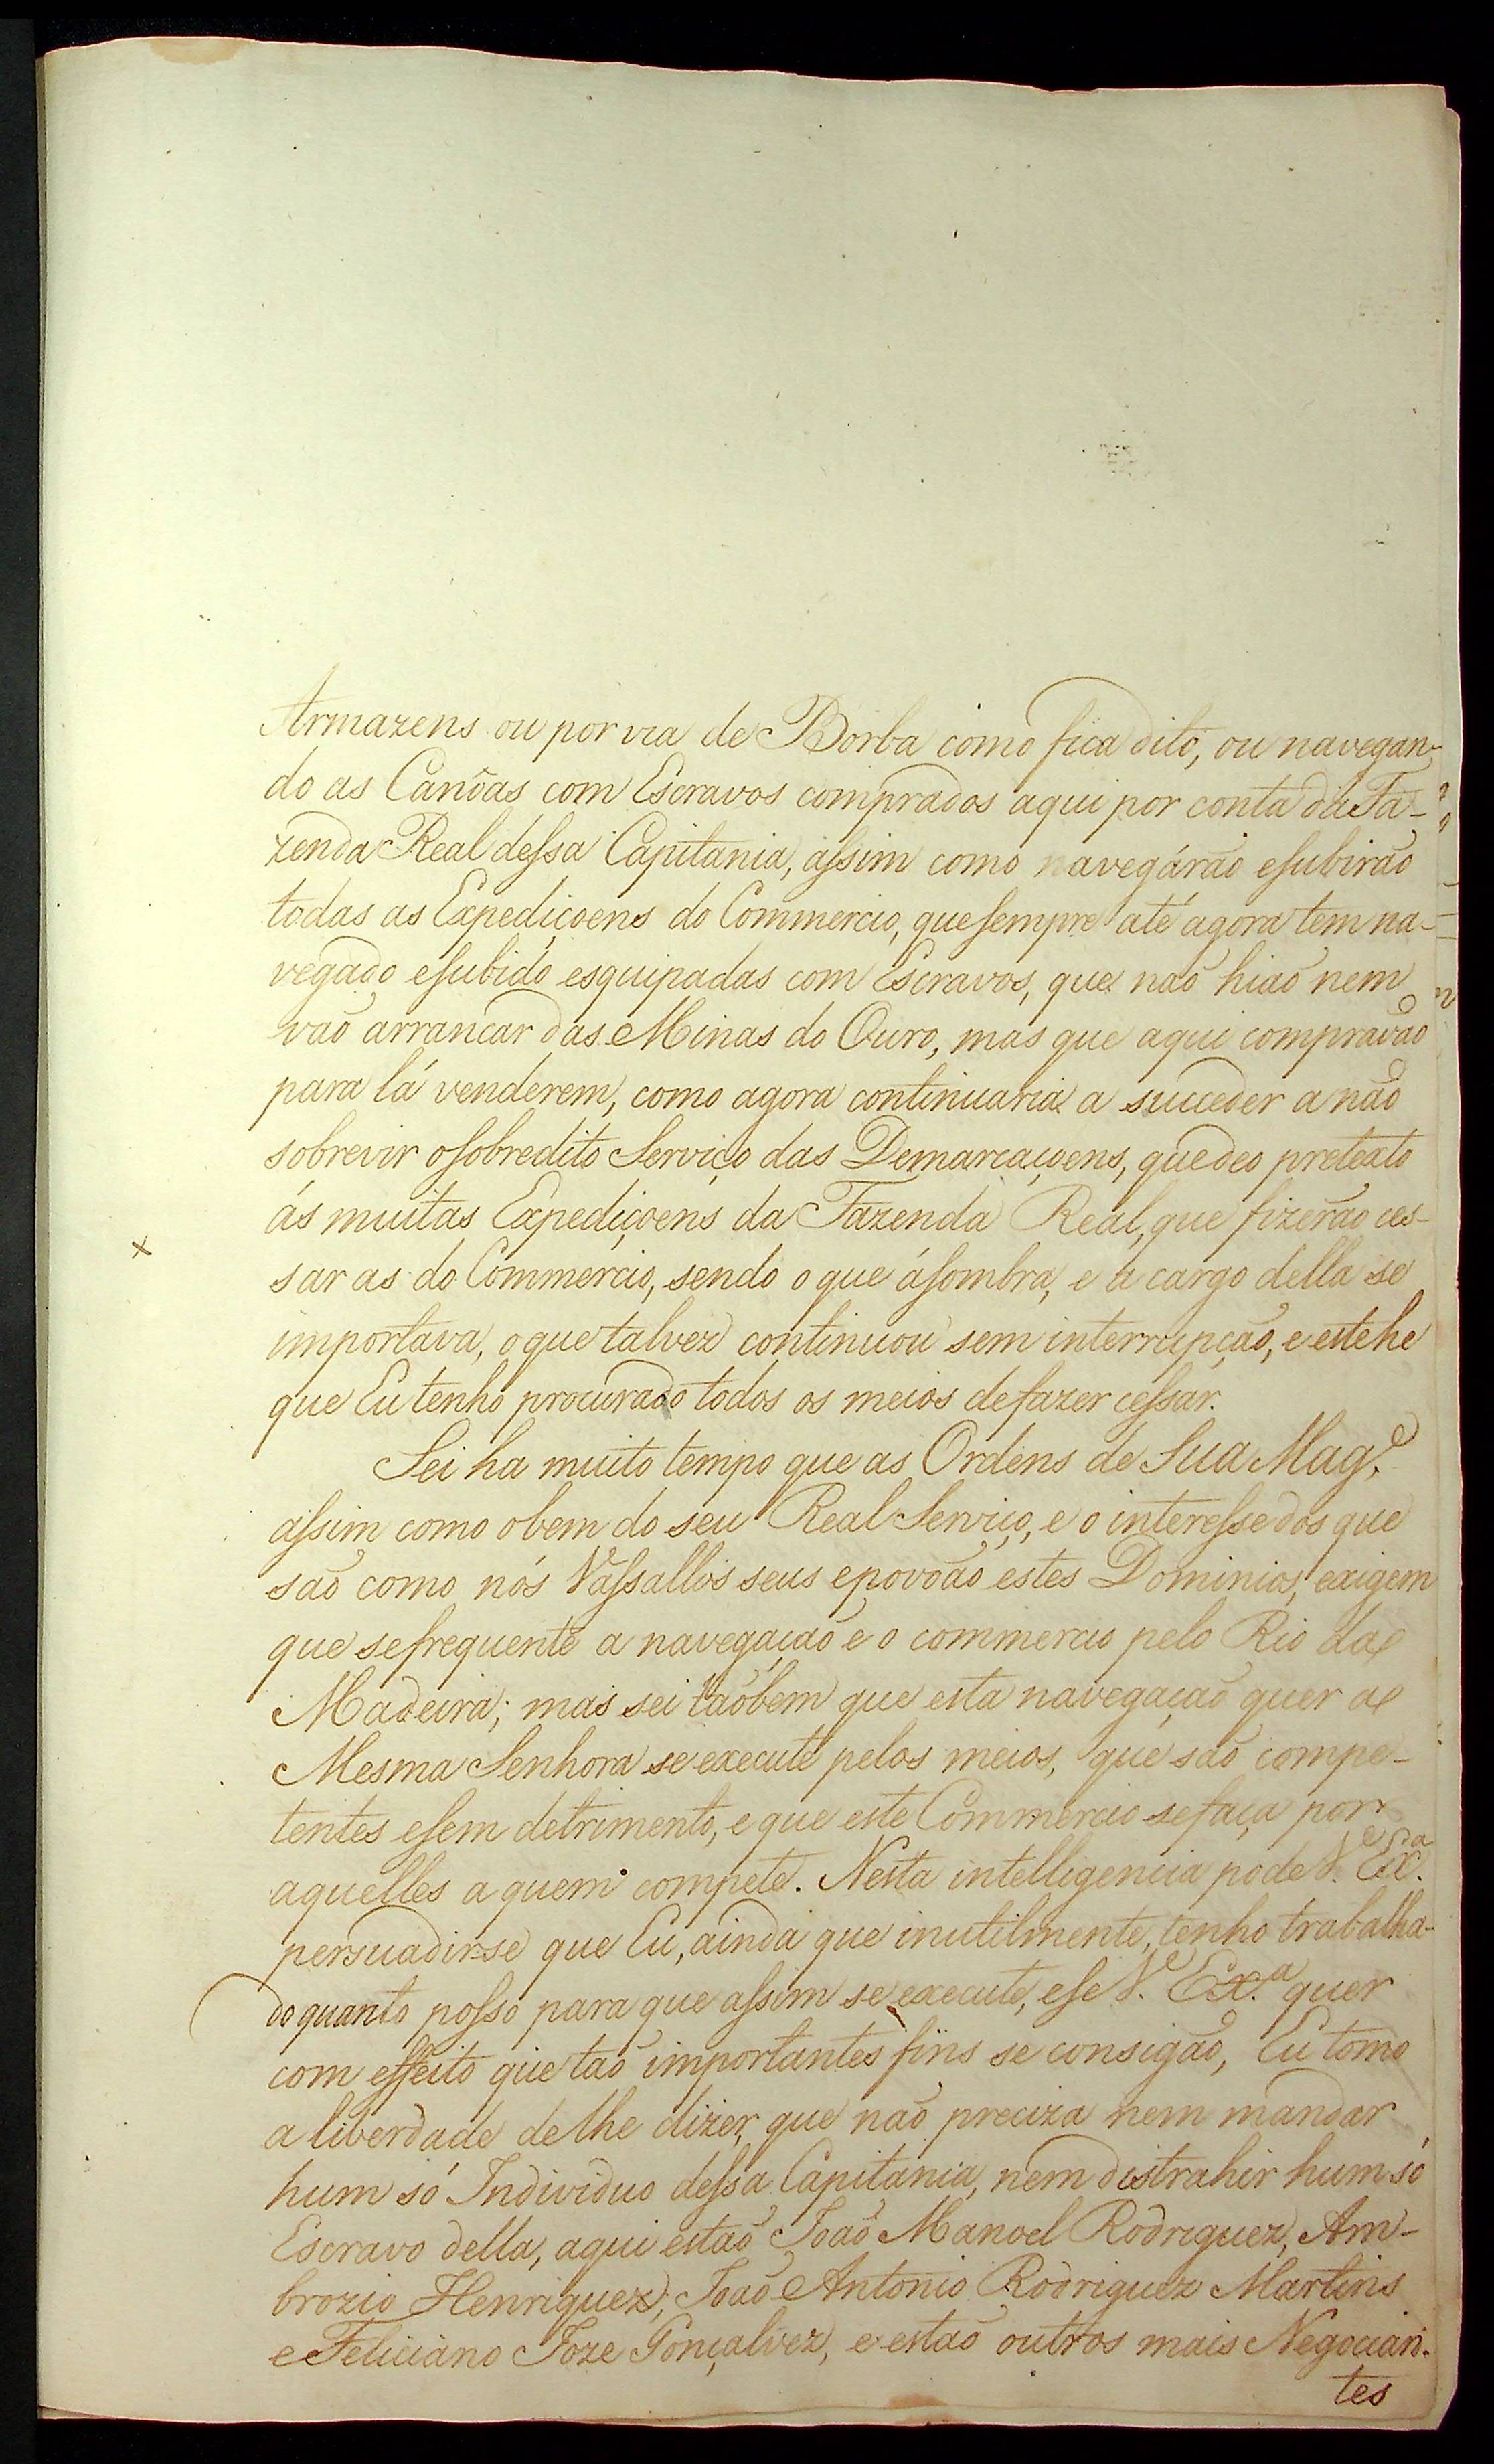 Armazens ou por via de Borba como fica dito, ou navegan-
do as Canôas com Escravos comprados aqui por conta da Fa-
zenda Real dessa Capitania, assim como navegárão e subirão
todas as Expediçoens do Commercio, que sempre até agora tem na-
vegado e subido esquipadas com Escravos, que não hiaõ nem
vaõ arrancar das Minas do Ouro, mas que aqui compravaõ
para lá venderem, como agora continuaria a succeder a naõ
sobrevir o sobredito Serviço das Demarcaçoens, que deo pretexto
ás muitas Expediçoens da Fazenda Real, que fizeraõ ces-
x
sar as do Commercio, sendo o que á sombra, e a cargo della se
importava, o que talvez continuou sem interrupçaõ, e este he
que Eu tenho procurado todos os meios de fazer cessar.
Sei ha muito tempo que as Ordens de Sua Mag.e
assim como o bem do seu Real Serviço, e o interesse dos que
saõ como nós Vassallos seus e povoaõ estes Dominios, exigem
que se frequente a navegaçaõ e o commercio pelo Rio da
Madeira; mas sei taõbem que esta navegaçaõ quer a
Mesma Senhora se execute pelos meios, que saõ compe-
tentes e sem detrimento, e que este Commercio se faça por
aquelles a quem compete. Nesta intelligencia pode V.e Ex.a
persuadir-se que Eu, ainda que inutilmente, tenho trabalha-
do quanto posso para que assim se execute, e se V.e Ex.a quer
com effeito que taõ importantes fins se consigaõ, Eu tomo
a liberdade de lhe dizer, que naõ preciza nem mandar
hum só Individuo dessa Capitania, nem distrahir hum só
Escravo della, aqui estaõ Joaõ Manoel Rodriguez, Am-
brozio Henriquez, Joaõ Antonio Rodriguez Martins
e Feliciano Joze Gonçalvez, e estaõ outros mais Negocian-
tes